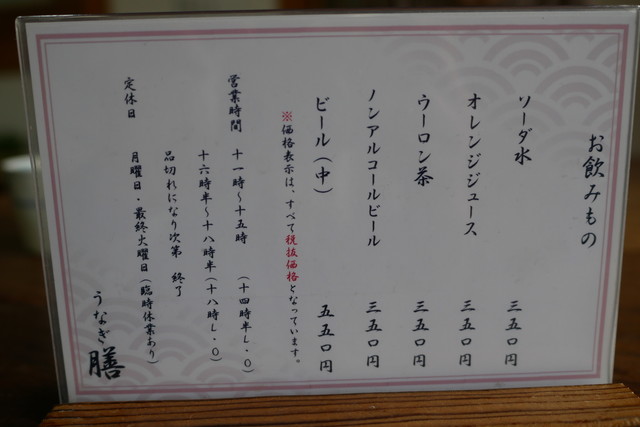 お飲みもの
ソーダ水 三五〇円
オレンジジュース 三五〇円
ウーロン茶 三五〇円
ノンアルコールビール 三五〇円
ビール(中) 五五〇円
※価格表示は、すべて税抜価格となっています。
営業時間 十一時~十五時 (十四時半L.O)
十六時半~十八時半(十八時L.O)
品切れになり次第 終了
定休日 月曜日・最終火曜日(臨時休業あり)
うなぎ 膳